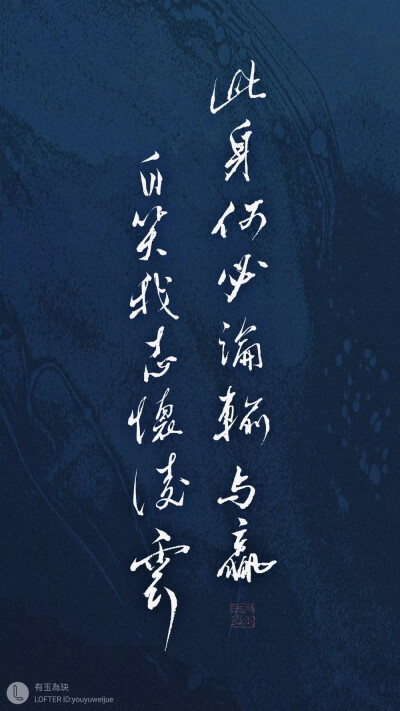 此身何必論輸与贏
自笑我志懷凌雲
有玉為玦
LOFTER ID:youyuweijue